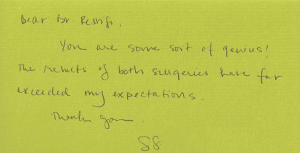 Dear Dr.
You are some sort of genius!
The results of both surgeries have far
exceeded my expectations.
Thank you
SS